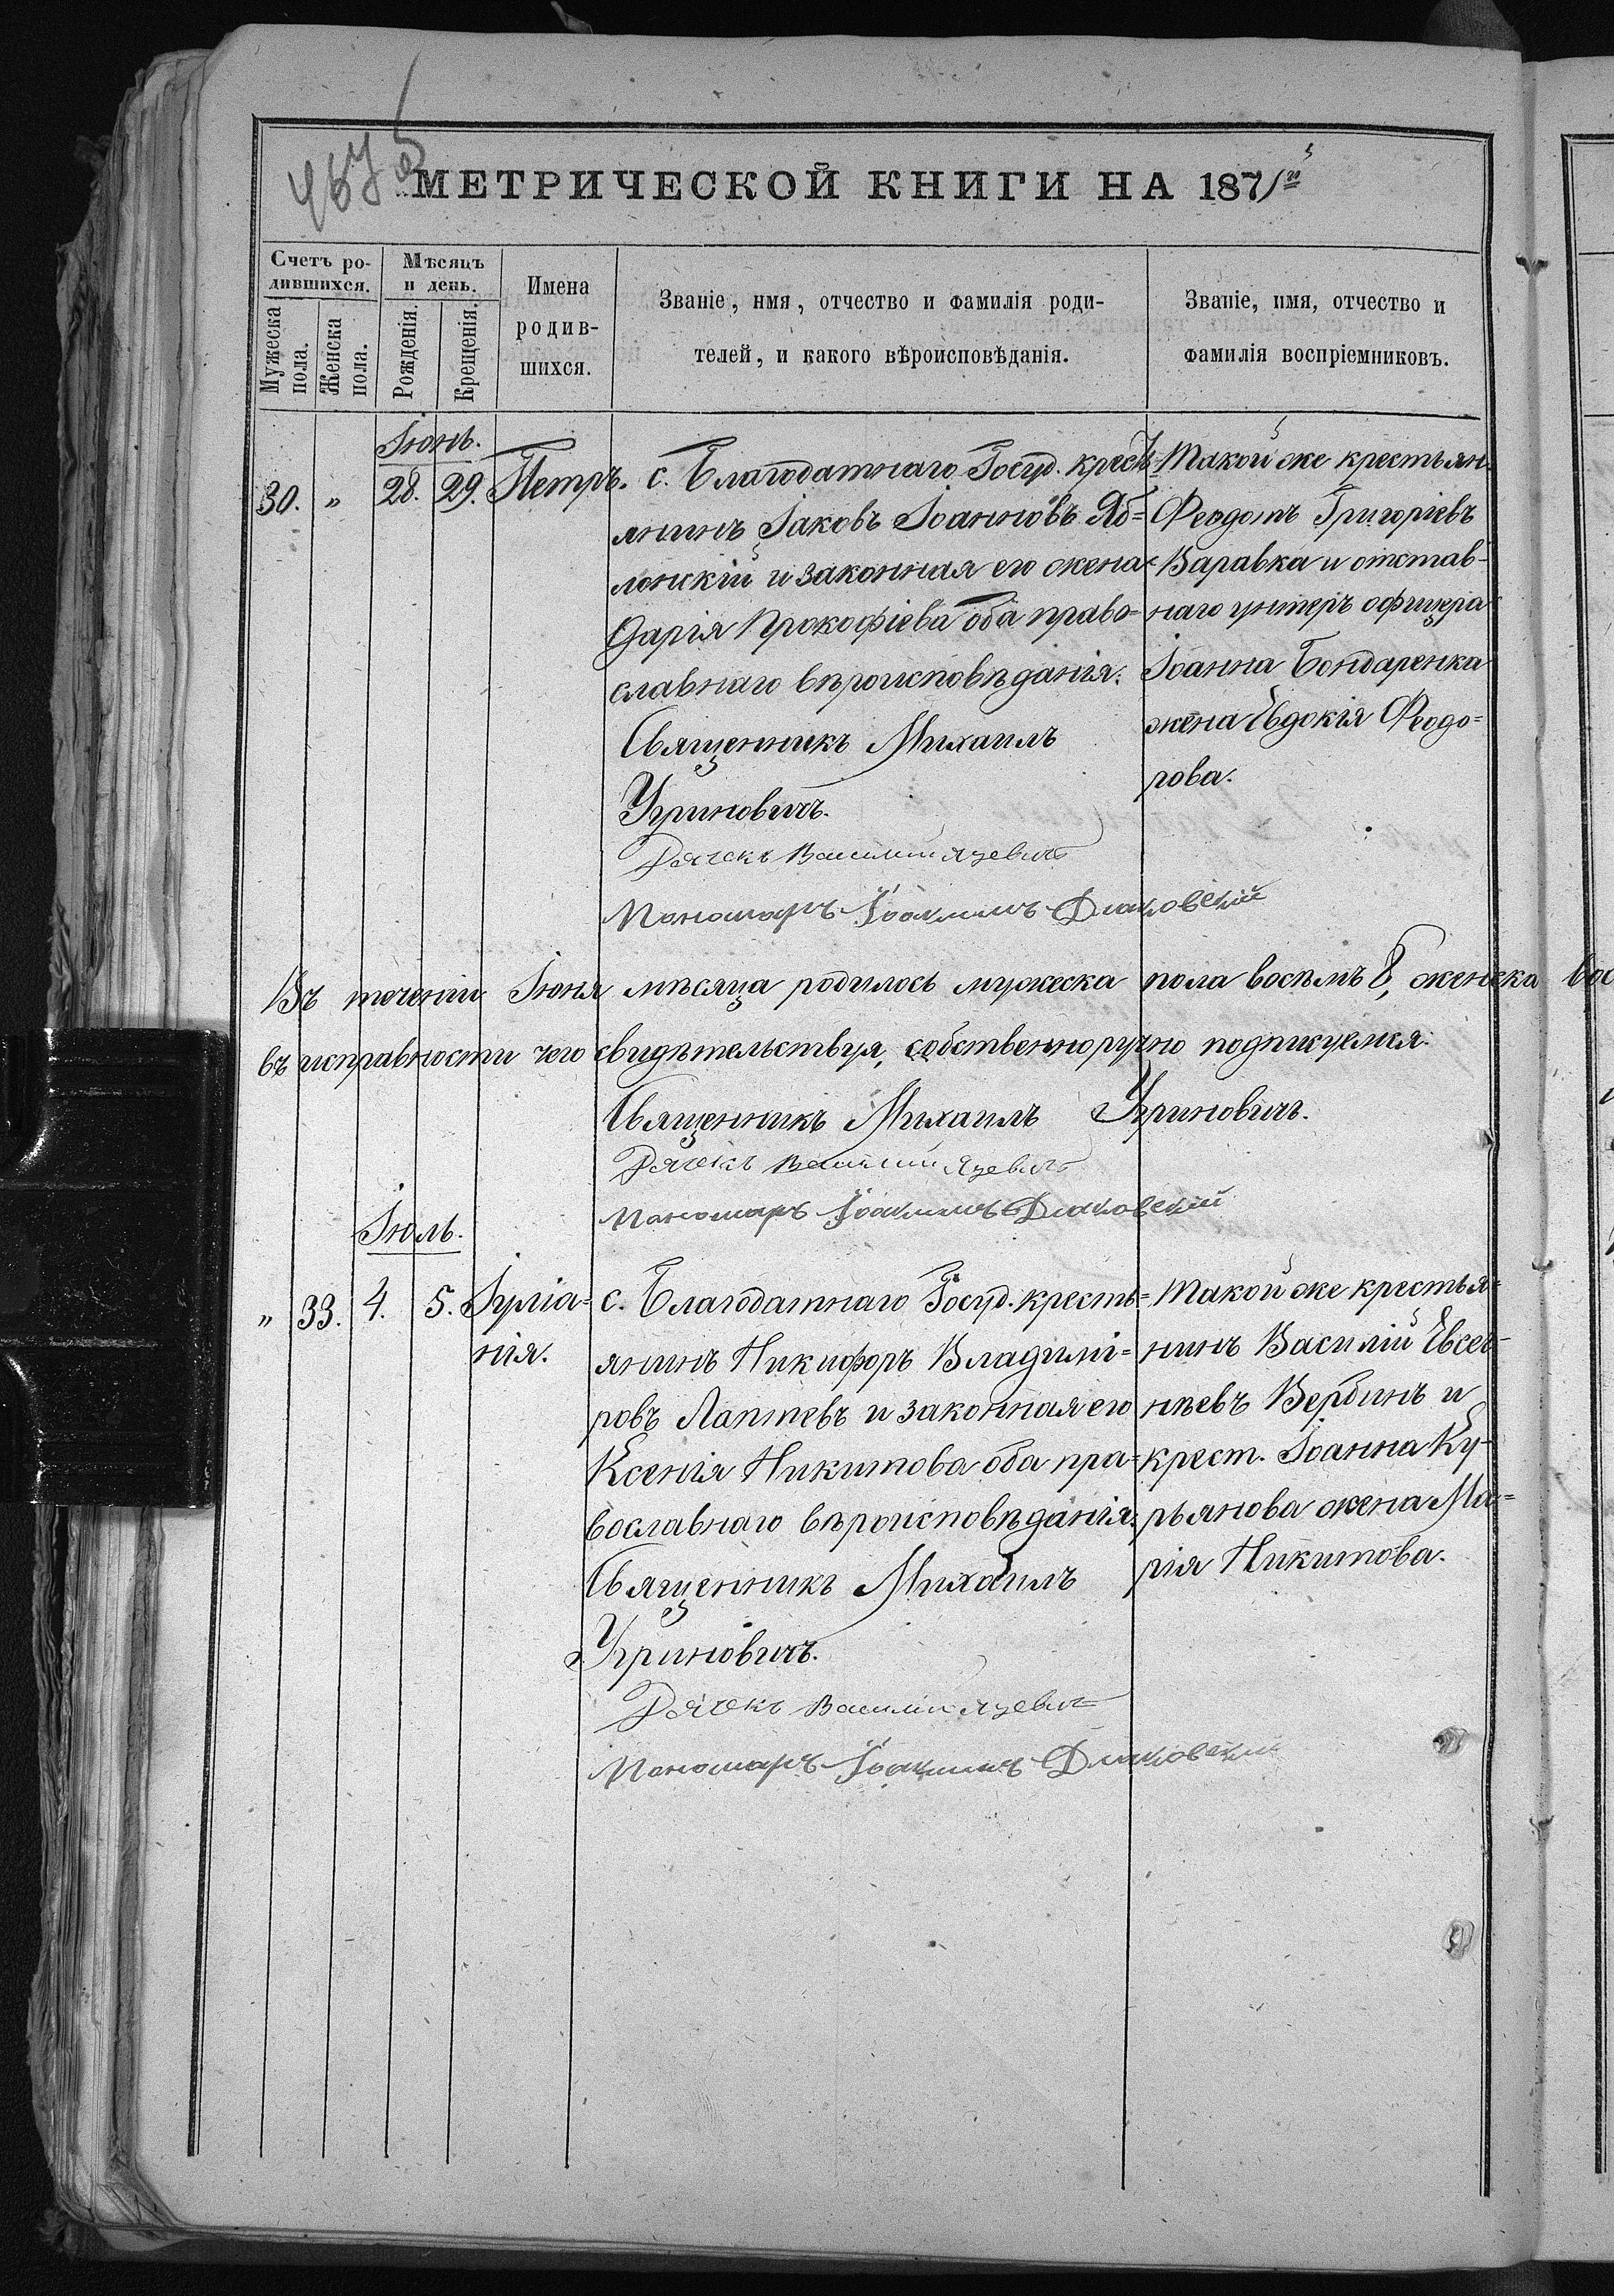 467 об
МЕТРИЧЕСКОЙ КНИГИ НА 1871 й
Счетъ ро-
дившихся.
Мужеска
пола.
Женска
пола.
Мѣсяцъ
и день.
Рожденія.
Крещенія.
Имена
родив-
шихся.
Званіе, имя, отчество и фамилія роди-
телей, и какого вѣроисповѣданія.
Званіе, имя, отчество и
фамилія воспріемниковъ.
Іюнь.
30. „ 28. 29. Петръ.
с. Благодатнаго Госуд. кресть-
янинъ Іаковъ Іоанновъ Яб=
лонскій и законная его жена
Дарія Прокофіева оба право=
славнаго вѣроисповѣданія.
Священникъ Михаилъ
Угриновичъ.
Дячекъ Василий Яцевичъ
Пономарь Іоакимъ Дьяковский
Такой же крестьян.
Феодотъ Григоріевъ
Варавка и отстав-
наго унтеръ офицера
Іоанна Бондаренка
жена Евдокія Феодо=
рова.
Въ теченіи Іюня мѣсяца родилось мужеска пола восѣмъ 8, женска вос
въ исправности чего свидѣтельствуя, собственноручно подписуемся.
Священникъ Михаилъ Угриновичъ.
Дячекъ Василий Яцевичъ
Пономарь Іоакимъ Дьяковский
Іюль.
„ 33. 4. 5. Іуліа=
нія.
с. Благодатнаго Госуд. кресть=
янинъ Никифоръ Владимі=
ровъ Лаптевъ и законная его
Ксенія Никитова оба пра=
вославнаго вѣроисповѣданія.
Священникъ Михаилъ
Угриновичъ.
Дячекъ Василий Яцевичъ
Пономарь Іоакимъ Дьяковский
Такой же крестья=
нинъ Василій Евсеь-
нѣевъ Вербинъ и
крест. Іоанна Ку-
рьянова жена Ма=
рія Никитова.